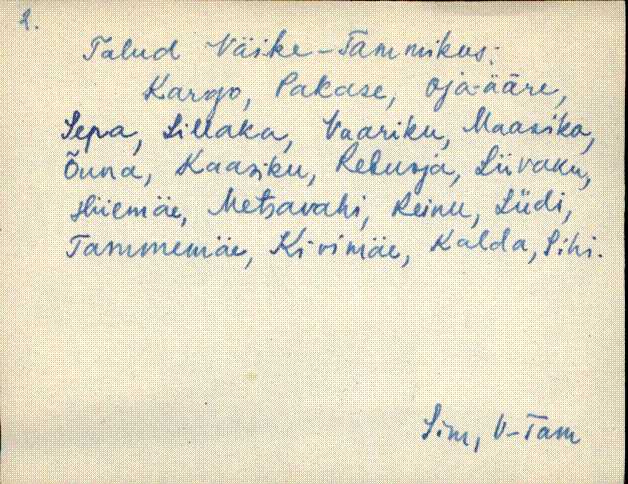 2.
Talud Väike-Tammikus:
Kargo, Pakase, Oja-ääre,
Sepa, Sillaka, Vaariku, Maasika,
Õuna, Kaasiku, Rebusja, Liivaku,
Hiiemäe, Metsavahi, Reinu, Lüdi,
Tammemäe, Kivimäe, Kalda, Sihi.
Sim, V-Tam